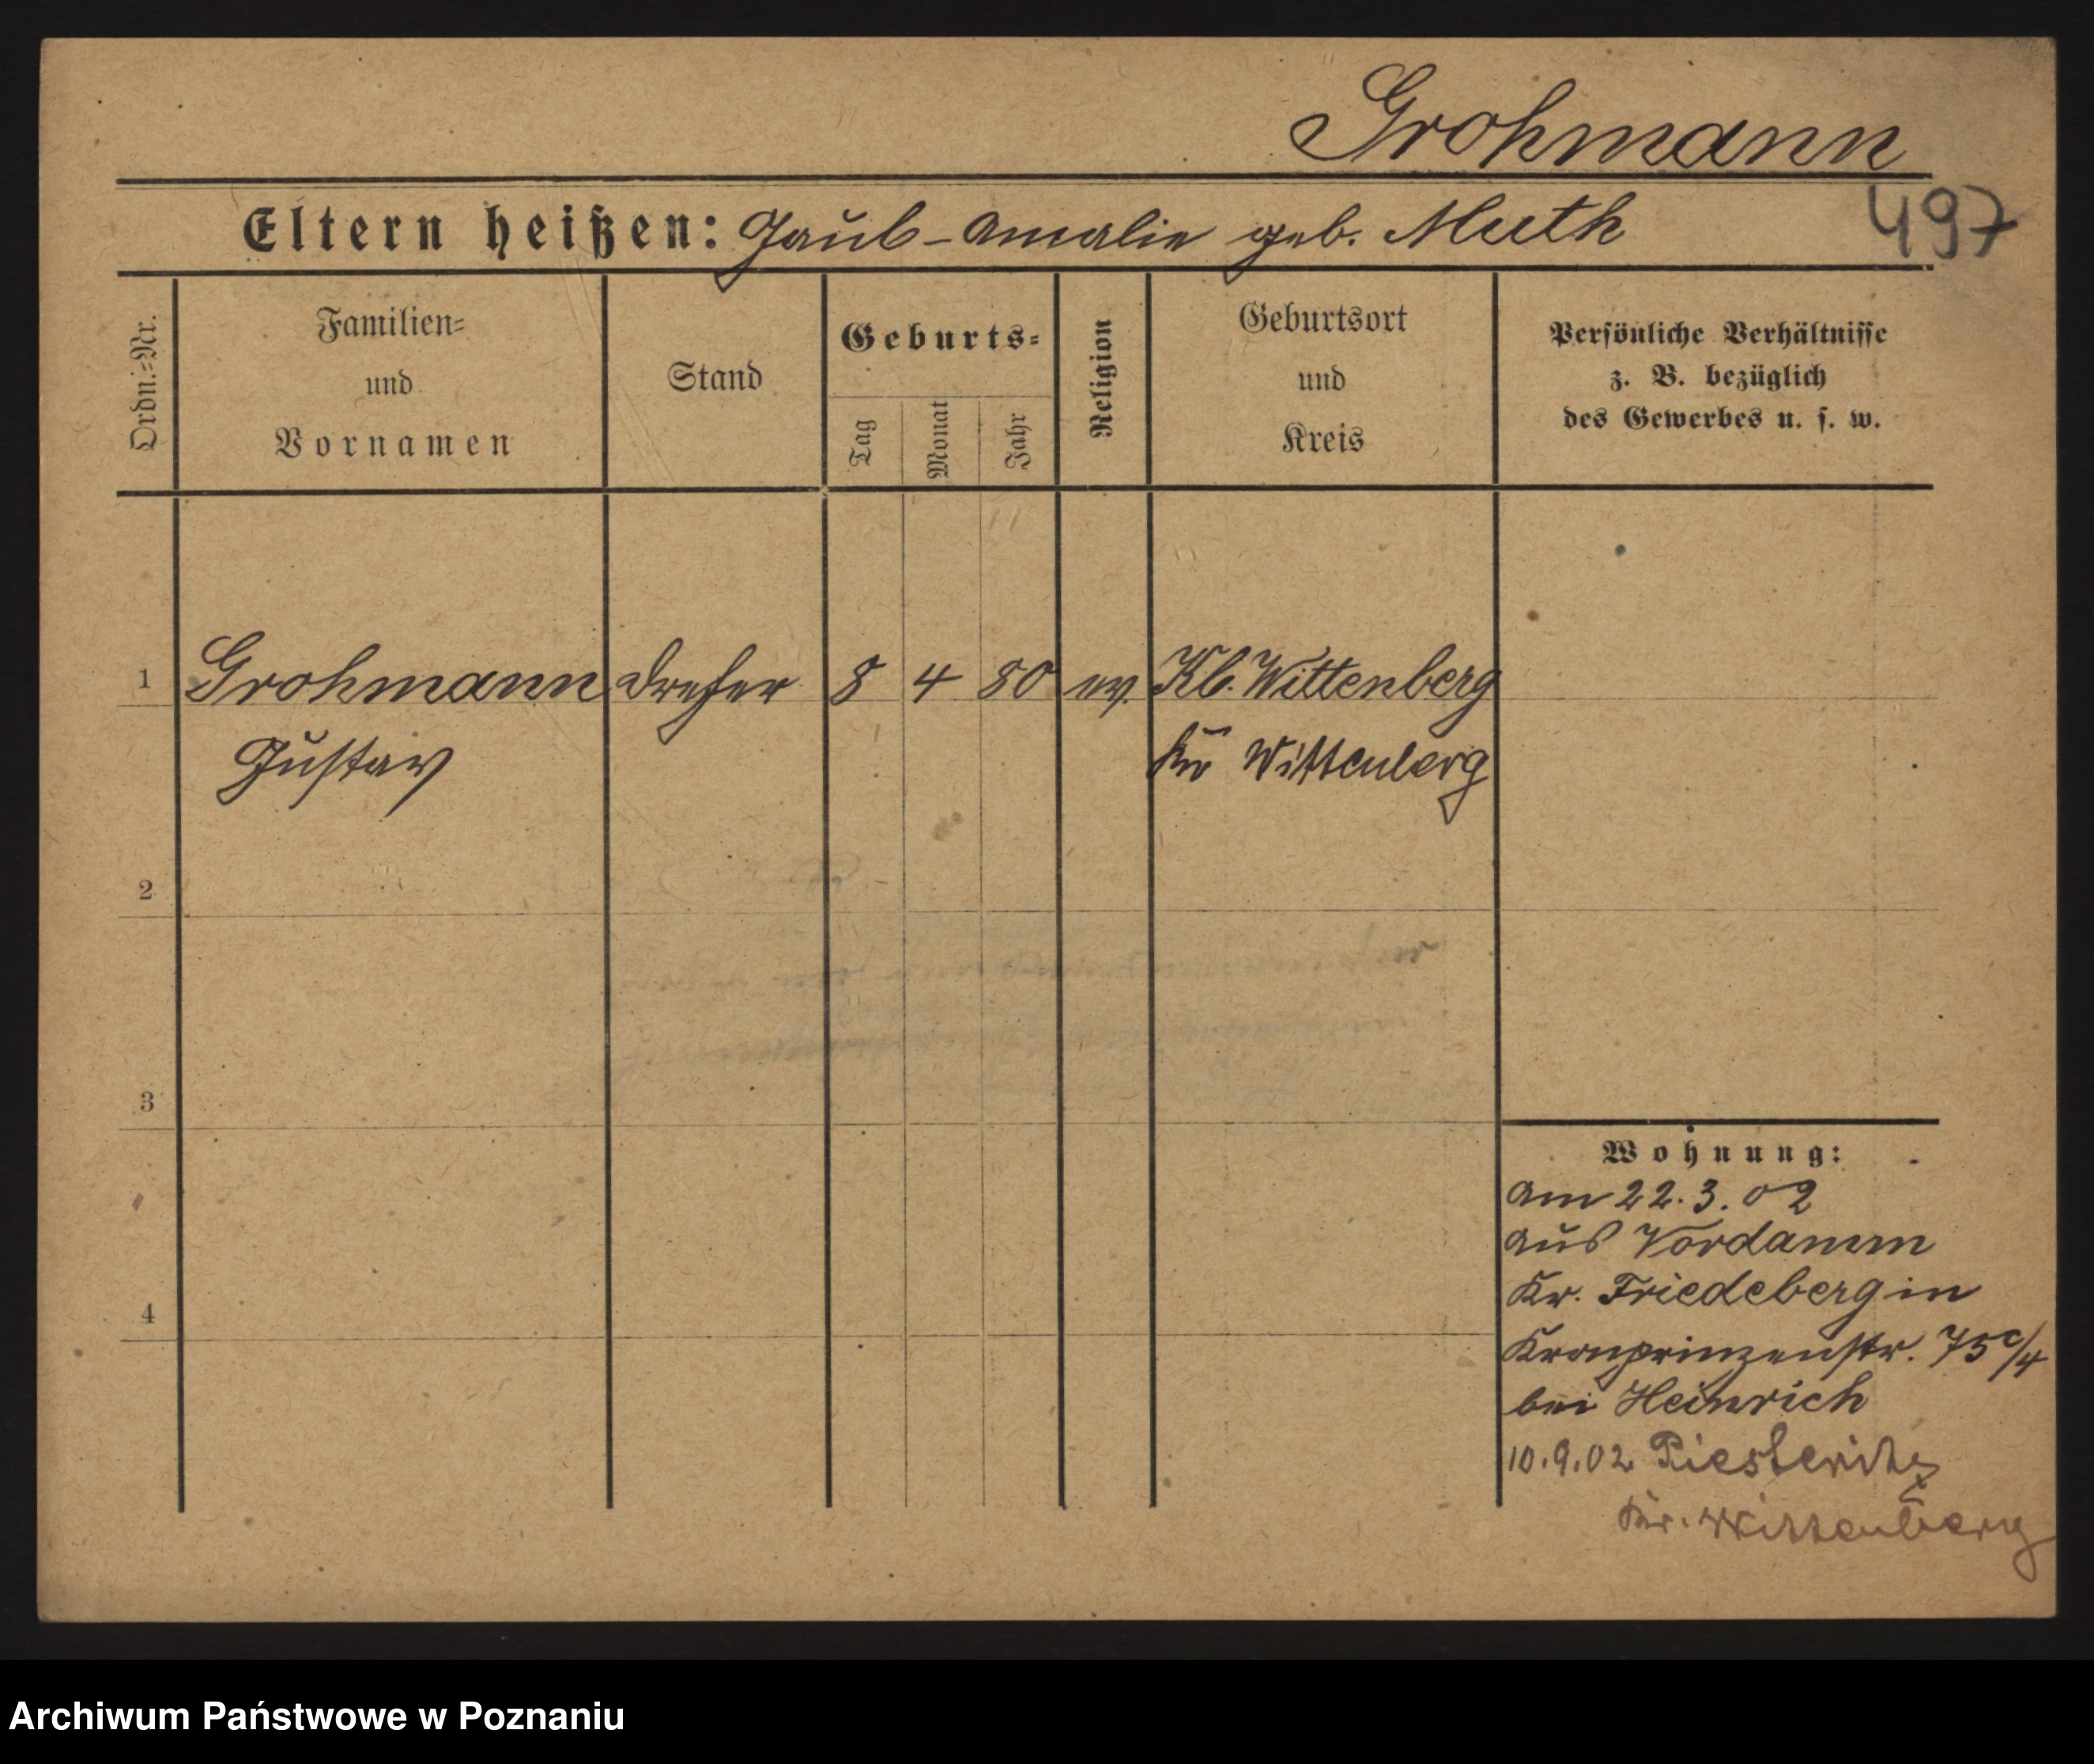 Grohmann
Eltern heißen: Amalie geb. Muth
497
Ordn.=Nr.
Familien=
und
Vornamen
Stand
Geburts=
Tag
Monat
Jahr
Religion
Geburtsort
und
Kreis
Persönliche Verhältnisse
z. B. bezüglich
des Gewerbes u. s. w.
1 Grohmann Dreher 8 4 80 ev. Kl. Wittenberg
Gustav Kr Wittenberg
2
3
4
Wohnung:
am 22. 3. 02
aus Vordamm
Kr. Friedeberg in
Kronprinzenstr. 75c/4
bei Heinrich
10. 9. 02 Piesteritz
Kr. Wittenberg
Archiwum Państwowe w Poznaniu